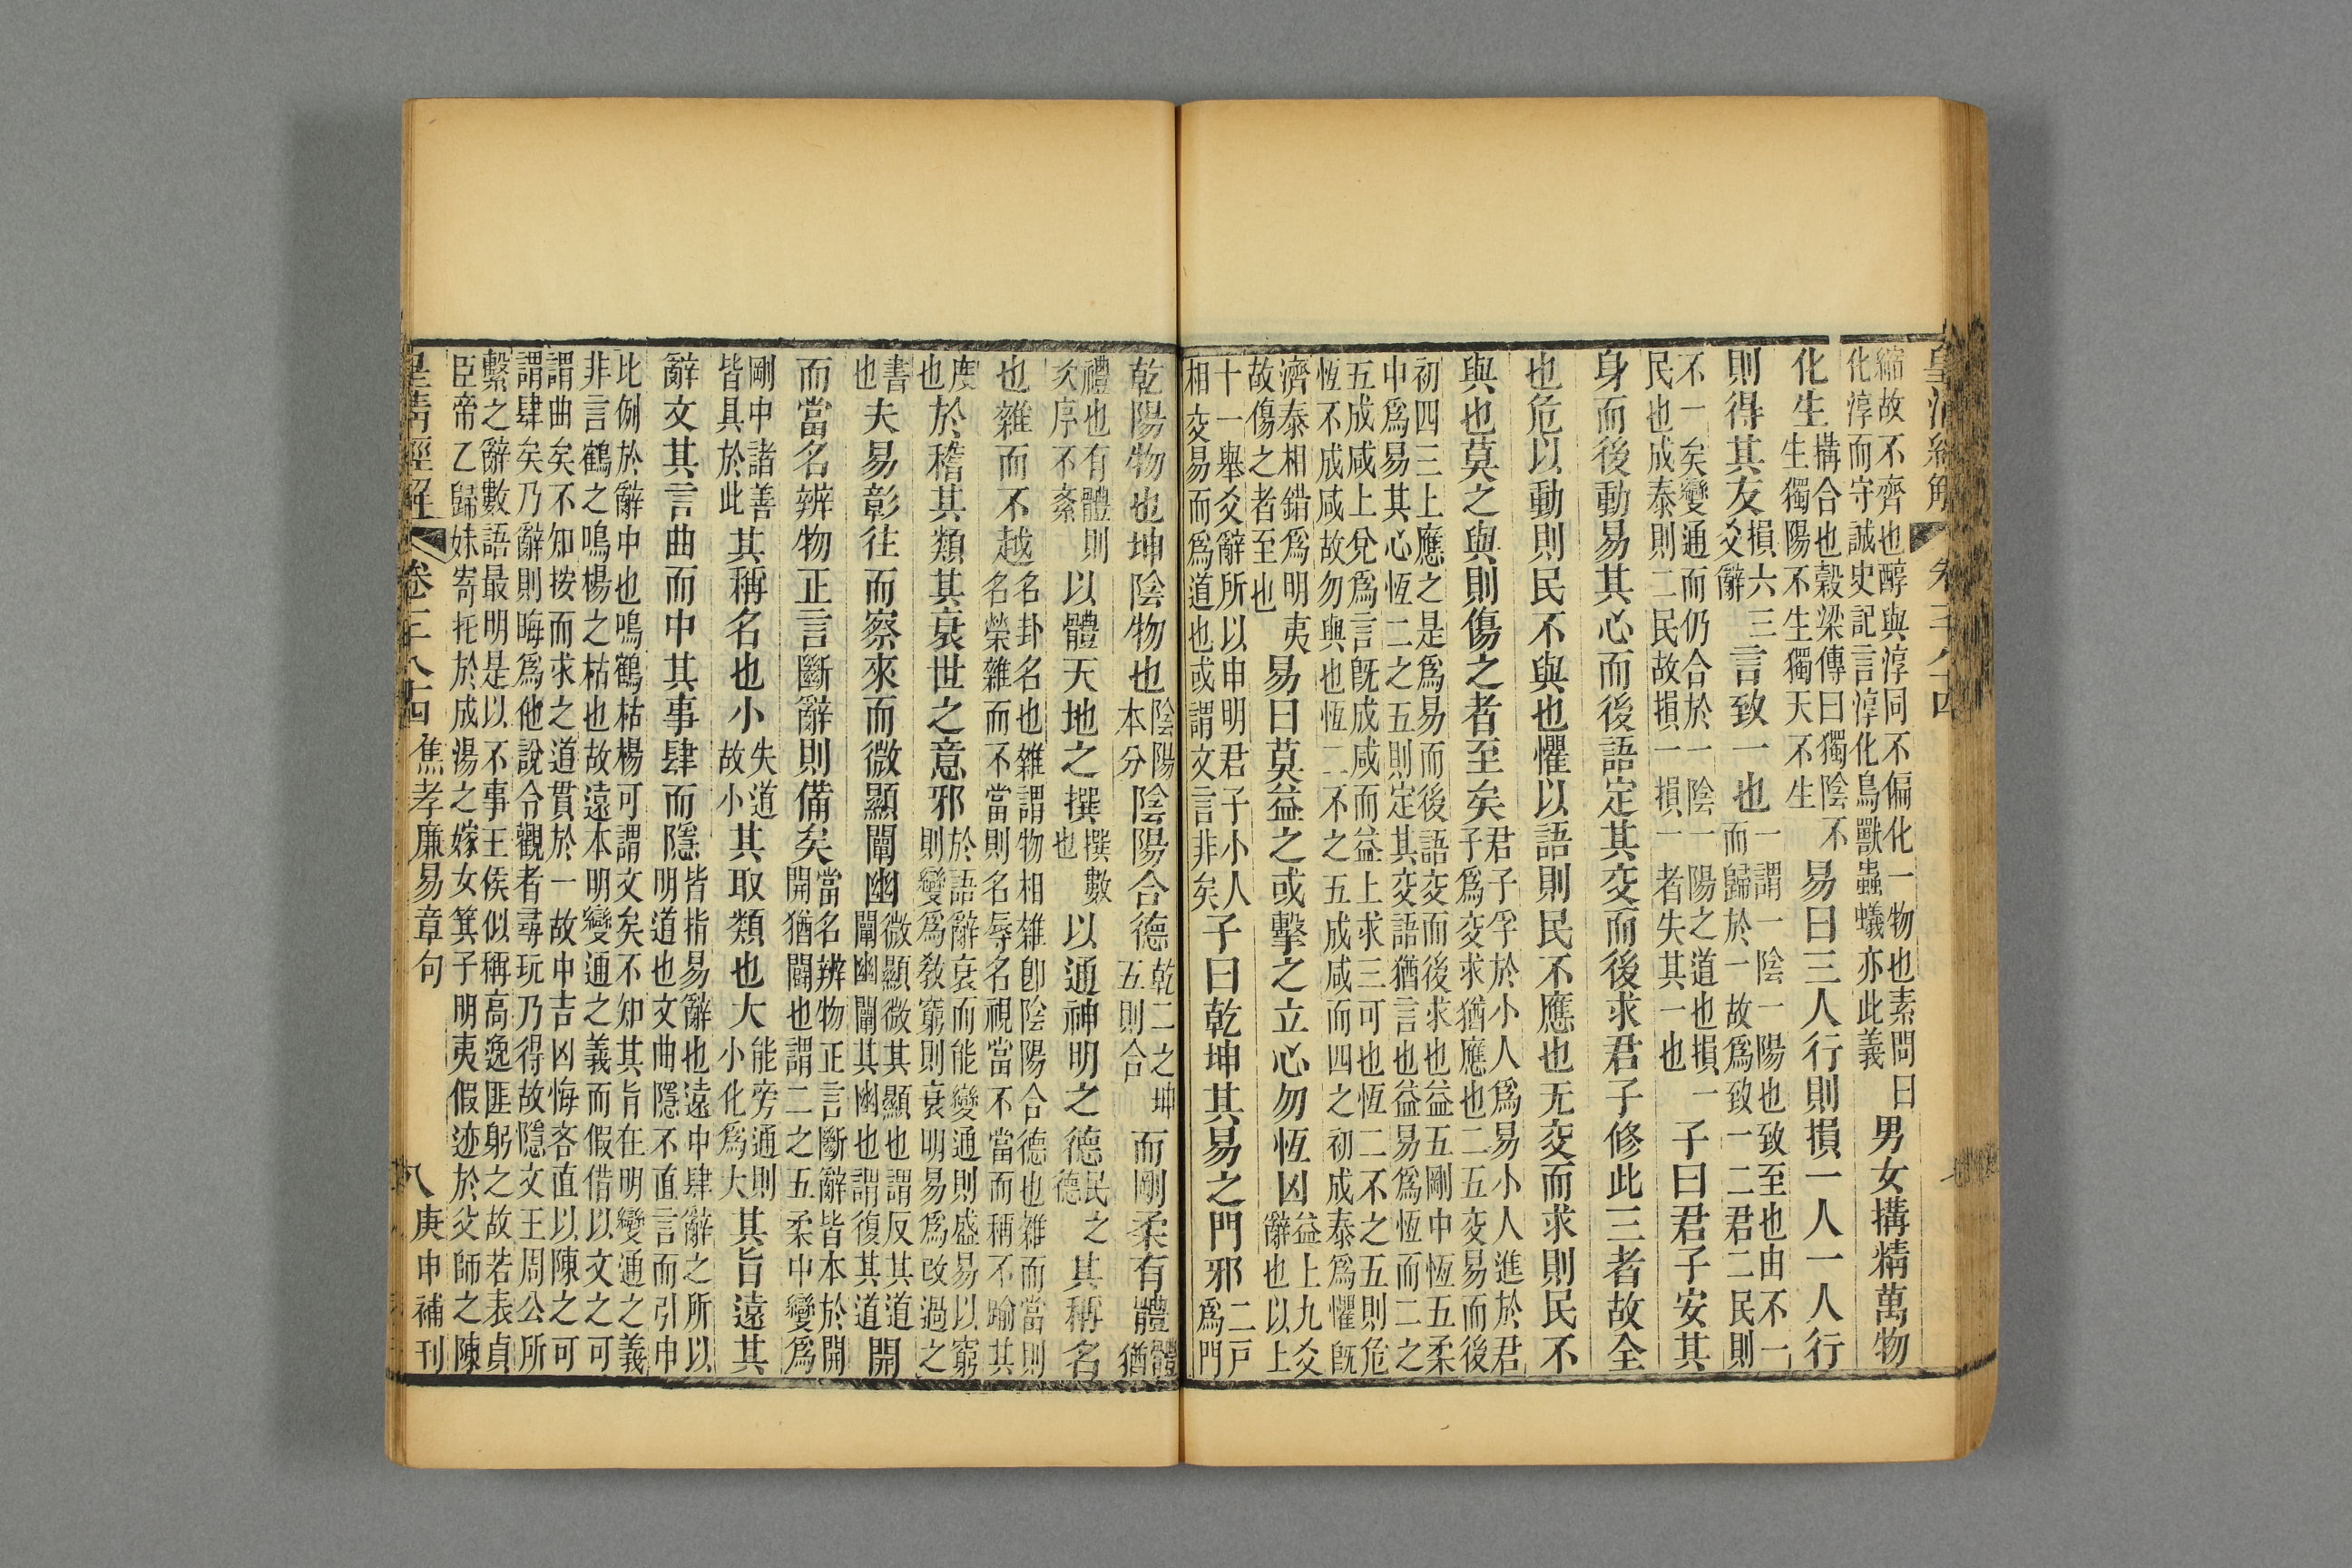 皇清經解 卷千八十四
縮故不齊也醇與淳同不偏化一物也素問曰
化淳而守誠史記言淳化鳥獸蟲蟻亦此義
男女搆精萬物
化生
搆合也穀梁傳曰獨陰不
生獨陽不生獨天不生
易曰三人行則損一人一人行
則得其友
損六三
爻辭
言致一也
一謂一陰一陽也致至也由不一
而歸於一故爲致一二君二民則
不一矣變通而仍合於一陰一陽之道也損一
民也成泰則二民故損一損一者失其一也
子曰君子安其
身而後動易其心而後語定其交而後求君子修此三者故全
也危以動則民不與也懼以語則民不應也无交而求則民不
與也莫之與則傷之者至矣
君子孚於小人爲易小人進於君
子爲交求猶應也二五交易而後
初四三上應之是爲易而後語交而後求也益五剛中恆五柔
中爲易其心恆二之五則定其交語猶言也益易爲恆而二之
五成咸上兌爲言既成咸而益上求三可也恆二不之五則危
恆不成咸故勿與也恆二不之五成咸而四之初成泰爲懼既
濟泰相錯爲明夷
故傷之者至也
易曰莫益之或擊之立心勿恆凶
益上九爻
辭也以上
十一舉爻辭所以申明君子小人
相交易而爲道也或謂文言非矣
子曰乾坤其易之門邪
二戶
爲門
乾陽物也坤陰物也
陰陽
本分
陰陽合德
乾二之坤
五則合
而剛柔有體
體
猶
禮也有體則
爻序不紊
以體天地之撰
撰數
也
以通神明之德
民之
德
其稱名
也雜而不越
名卦名也雜謂物相雜卽陰陽合德也雜而當則
名榮雜而不當則名辱名視當不當而稱不踰其
度
也
於稽其類其衰世之意邪
於語辭衰而能變通則盛易以窮
則變爲敎窮則衰明易爲改過之
書
也
夫易彰往而察來而微顯闡幽
微顯微其顯也謂反其道
闡幽闡其幽也謂復其道
開
而當名辨物正言斷辭則備矣
當名辨物正言斷辭皆本於開
開猶闢也謂二之五柔中變爲
剛中諸善
皆具於此
其稱名也小
失道
故小
其取類也大
能旁通則
小化爲大
其旨遠其
辭文其言曲而中其事肆而隱
皆指易辭也遠中肆辭之所以
明道也文曲隱不直言而引申
比例於辭中也鳴鶴枯楊可謂文矣不知其旨在明變通之義
非言鶴之鳴楊之枯也故遠本明變通之義而假借以文之可
謂曲矣不知按而求之道貫於一故中吉凶悔吝直以陳之可
謂肆矣乃辭則晦爲他說令觀者尋玩乃得故隱文王周公所
繫之辭數語最明是以不事王侯似稱高逸匪躬之故若表貞
臣帝乙歸妹寄托於成湯之嫁女箕子明夷假迹於父師之陳
皇清經解 卷千八十四 焦孝廉易章句 八 庚申補刊